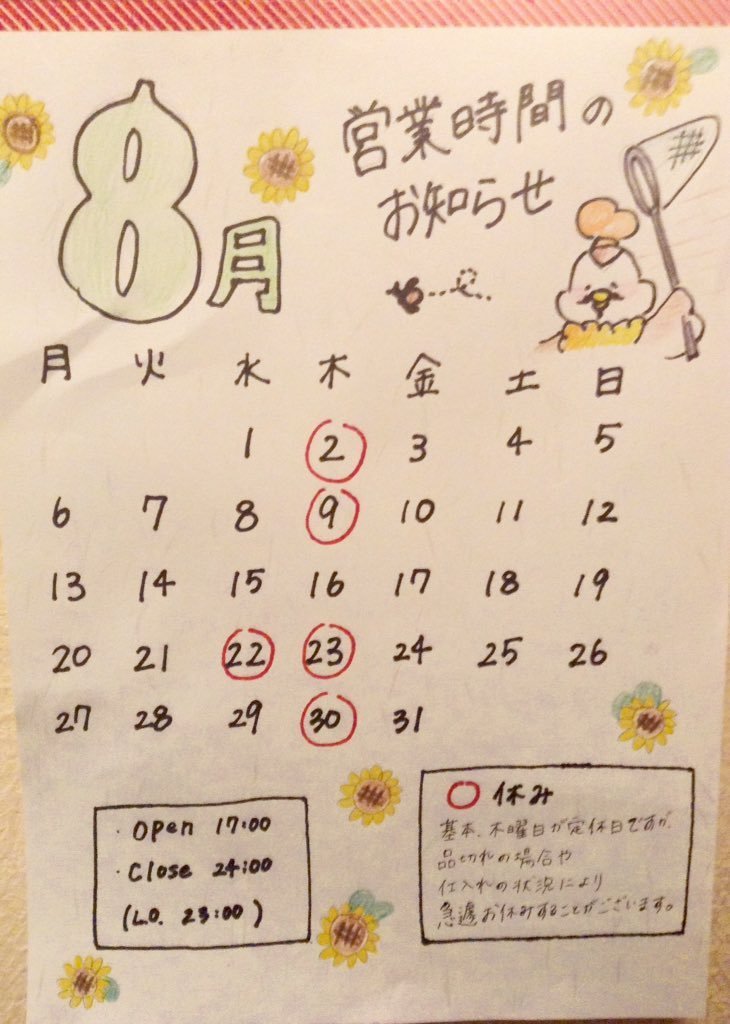 8月
営業時間の
お知らせ
月 火 水 木 金 土 日
1 2 3 4 5
6 7 8 9 10 11 12
13 14 15 16 17 18 19
20 21 22 23 24 25 26
27 28 29 30 31
・Open 17:00
・Close 24:00
(L.O. 23:00)
○ 休み
基本、木曜日が定休日ですが、
品切れの場合や
仕入れの状況により
急遽お休みすることがございます。